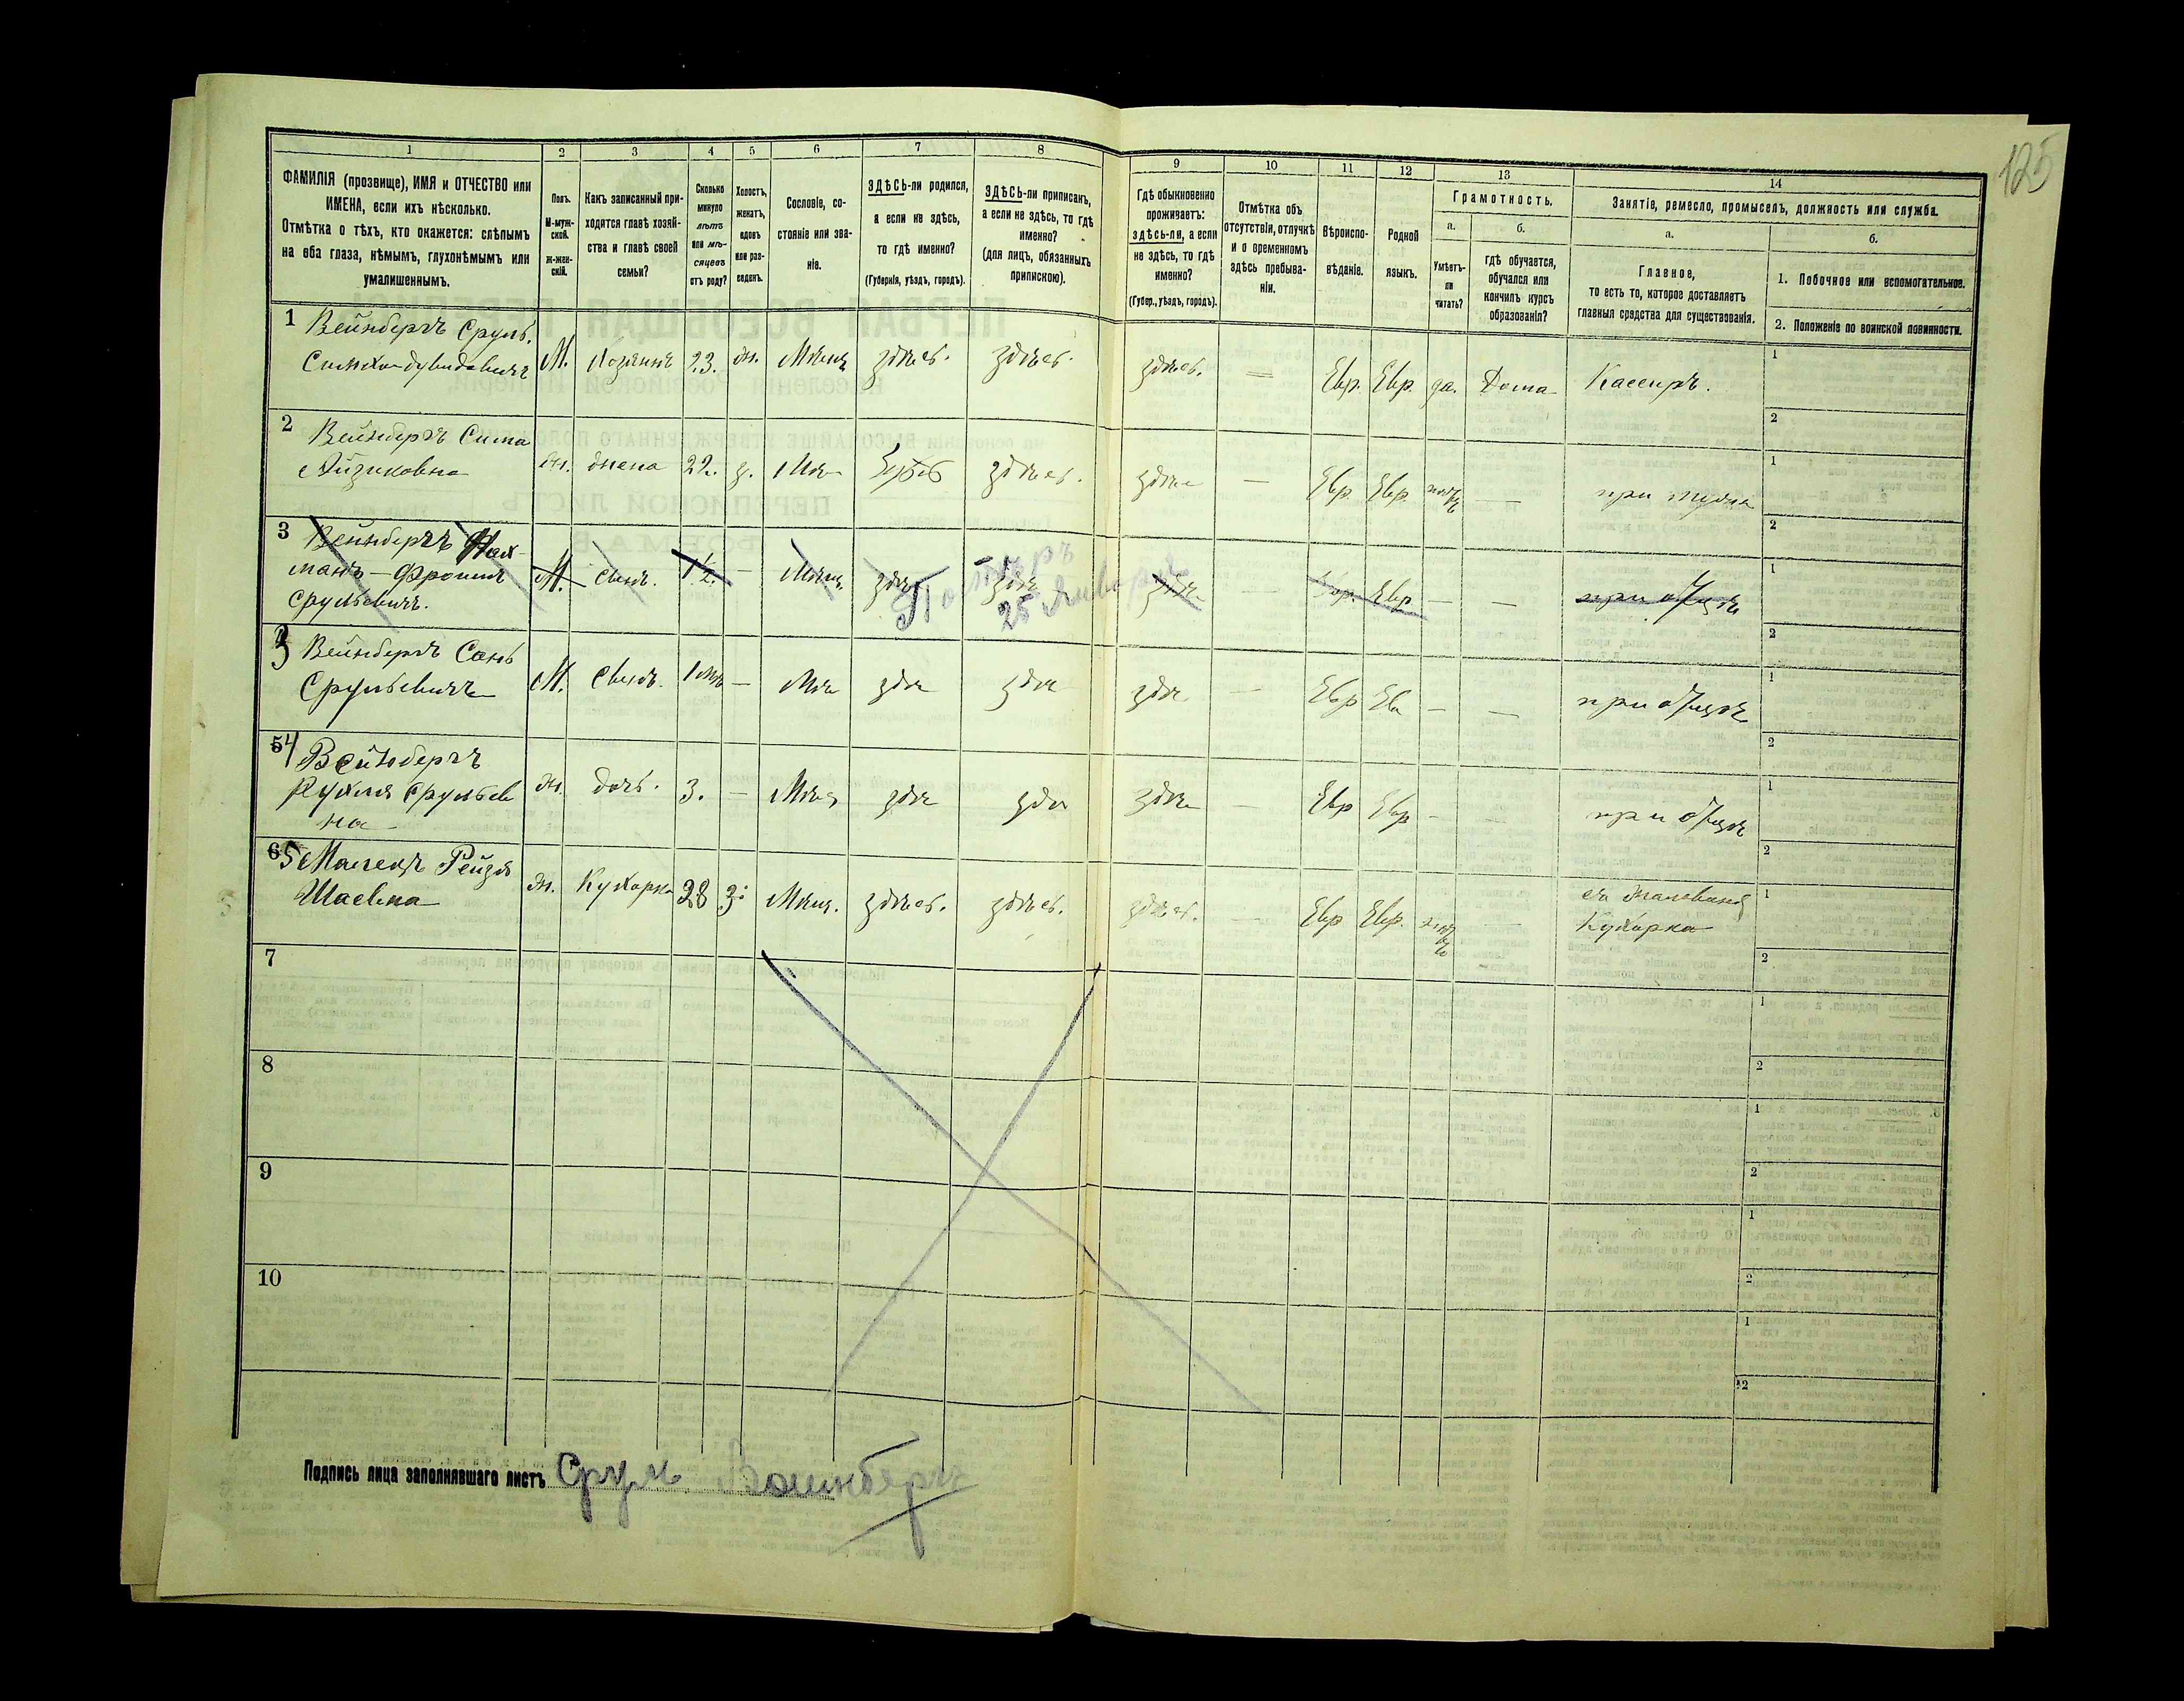 125
1 2 3 4 5 6 7 8 9 10 11 12 13 14
ФАМИЛІЯ (прозвище), ИМЯ и ОТЧЕСТВО или
ИМЕНА, если ихъ нѣсколько.
Отмѣтка о тѣхъ, кто окажется: слѣпымъ
на оба глаза, нѣмымъ, глухонѣмымъ или
умалишеннымъ.
Полъ.
М-муж-
ской.
Ж-жен-
скій.
Какъ записанный при-
ходится главѣ хозяй-
ства и главѣ своей
семьи?
Сколько
минуло
лѣтъ
или мѣ-
сяцевъ
отъ роду?
Холостъ,
женатъ,
вдовъ
или раз-
веденъ.
Сословіе, со-
стояніе или зва-
ніе.
ЗДѢСЬ-ли родился,
а если не здѣсь,
то гдѣ именно?
(Губернія, уѣздъ, городъ).
ЗДѢСЬ-ли приписанъ,
а если не здѣсь, то гдѣ
именно?
(для лицъ, обязанныхъ
припискою).
Гдѣ обыкновенно
проживаетъ:
здѣсь-ли, а если
не здѣсь, то гдѣ
именно?
(Губер., уѣздъ, городъ).
Отмѣтка объ
отсутствіи, отлучкѣ
и о временномъ
здѣсь пребыва-
ніи.
Вѣроиспо-
вѣданіе.
Родной
языкъ.
Грамотность.
а.
Умѣетъ-
ли
читать?
б.
гдѣ обучается,
обучался или
кончилъ курсъ
образованія?
Занятіе, ремесло, промыселъ, должность или служба.
а.
Главное,
то есть то, которое доставляетъ
главныя средства для существованія.
б.
1. Побочное или вспомогательное.
2. Положеніе по воинской повинности.
1 Вейнбергъ Сруль.
Симхо-Дувидовичъ М. Хозяинъ 23. ж. Мѣщ здѣсь. здѣсь. здѣсь. — Евр. Евр. да. Дома Кассиръ. 1
2
2 Вейнбергъ Сима
Айзиковна ж. жена 22. з. Мѣ здѣсь. здѣ — Евр. Евр. — при мужѣ 1
2
3 Вейнбергъ Нах-
манъ-Фроимъ
Срульевичъ. М. сынъ. 1½. — Мѣщ здѣ здѣ здѣ Евр. Евр. — — при отцѣ 1
Померъ
25 Января
2
Вейнбергъ
Срульевичъ М. сынъ. — Мѣ здѣ здѣ здѣ — Евр Ев — — при отцѣ 1
2
54 Вейнбергъ
Рухля Срульев
на ж. дочь. 3. — Мѣщ здѣ здѣ здѣ — Евр Евр — при отцѣ 1
2
65 Рейзя
Шаевна ж. Кухарка 28 з. Мѣщ. здѣсь. здѣсь. здѣсь. — Евр Евр. — 1
Кухарка
2
7 1
2
8 1
2
9 1
2
10 1
2
Подпись лица заполнявшаго листъ Сруль Вайнбергъ